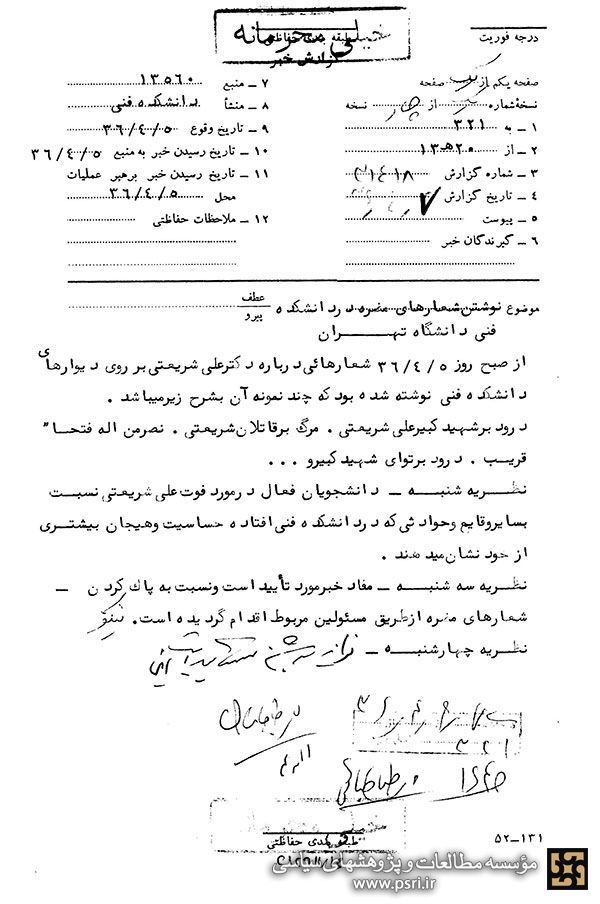 خیلی محرمانه
طبقه بندی حفاظتی
گزارش خبر
درجه فوریت
صفحه یکم از یک صفحه
نسخه شماره از چهار نسخه
۱ ـ به ۳۲۱
۲ ـ از ۲۰هـ۱۳
۳ ـ شماره گزارش
۴ ـ تاریخ گزارش
۵ ـ پیوست
۶ ـ گیرندگان خبر
۷ ـ منبع ۱۳۵۶۰
۸ ـ منشأ دانشکده فنی
۹ ـ تاریخ وقوع ۳۶/۴/۵
۱۰ ـ تاریخ رسیدن خبر به منبع ۳۶/۴/۵
۱۱ ـ تاریخ رسیدن خبر برهبر عملیات
محل ۳۶/۴/۵
۱۲ ـ ملاحظات حفاظتی
موضوع نوشتن شعارهای مضره در دانشکده
عطف
پیرو
فنی دانشگاه تهران
از صبح روز ۳۶/۴/۵ شعارهائی درباره دکترعلی شریعتی بر روی دیوارهای
دانشکده فنی نوشته شده بود که چند نمونه آن بشرح زیرمیباشد .
درود بر شهید کبیرعلی شریعتی . مرگ برقاتلان شریعتی . نصرمن اله فتحا"
قریب . درود برتوای شهید کبیرو ...
نظریه شنبه ـ دانشجویان فعال در مورد فوت علی شریعتی نسبت
بسایروقایع وحوادثی که در دانشکده فنی افتاده حساسیت وهیجان بیشتری
از خود نشان میدهند .
نظریه سه شنبه ـ مفاد خبر مورد تأیید است ونسبت به پاک کردن ـ
شعارهای مضره ازطریق مسئولین مربوط اقدام گردیده است. نیکو
نظریه چهارشنبه ـ
۳۲۱
طباطبائی
طبقه بندی حفاظتی
۵۲ـ۱۳۱
مؤسسه مطالعات و پژوهشهای سیاسی
www.psri.ir